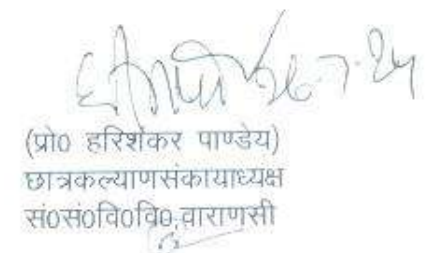 26.7.24
(प्रो0 हरिशंकर पाण्डेय)
छात्रकल्याणसंकायाध्यक्ष
सं0सं0वि0वि0,वाराणसी